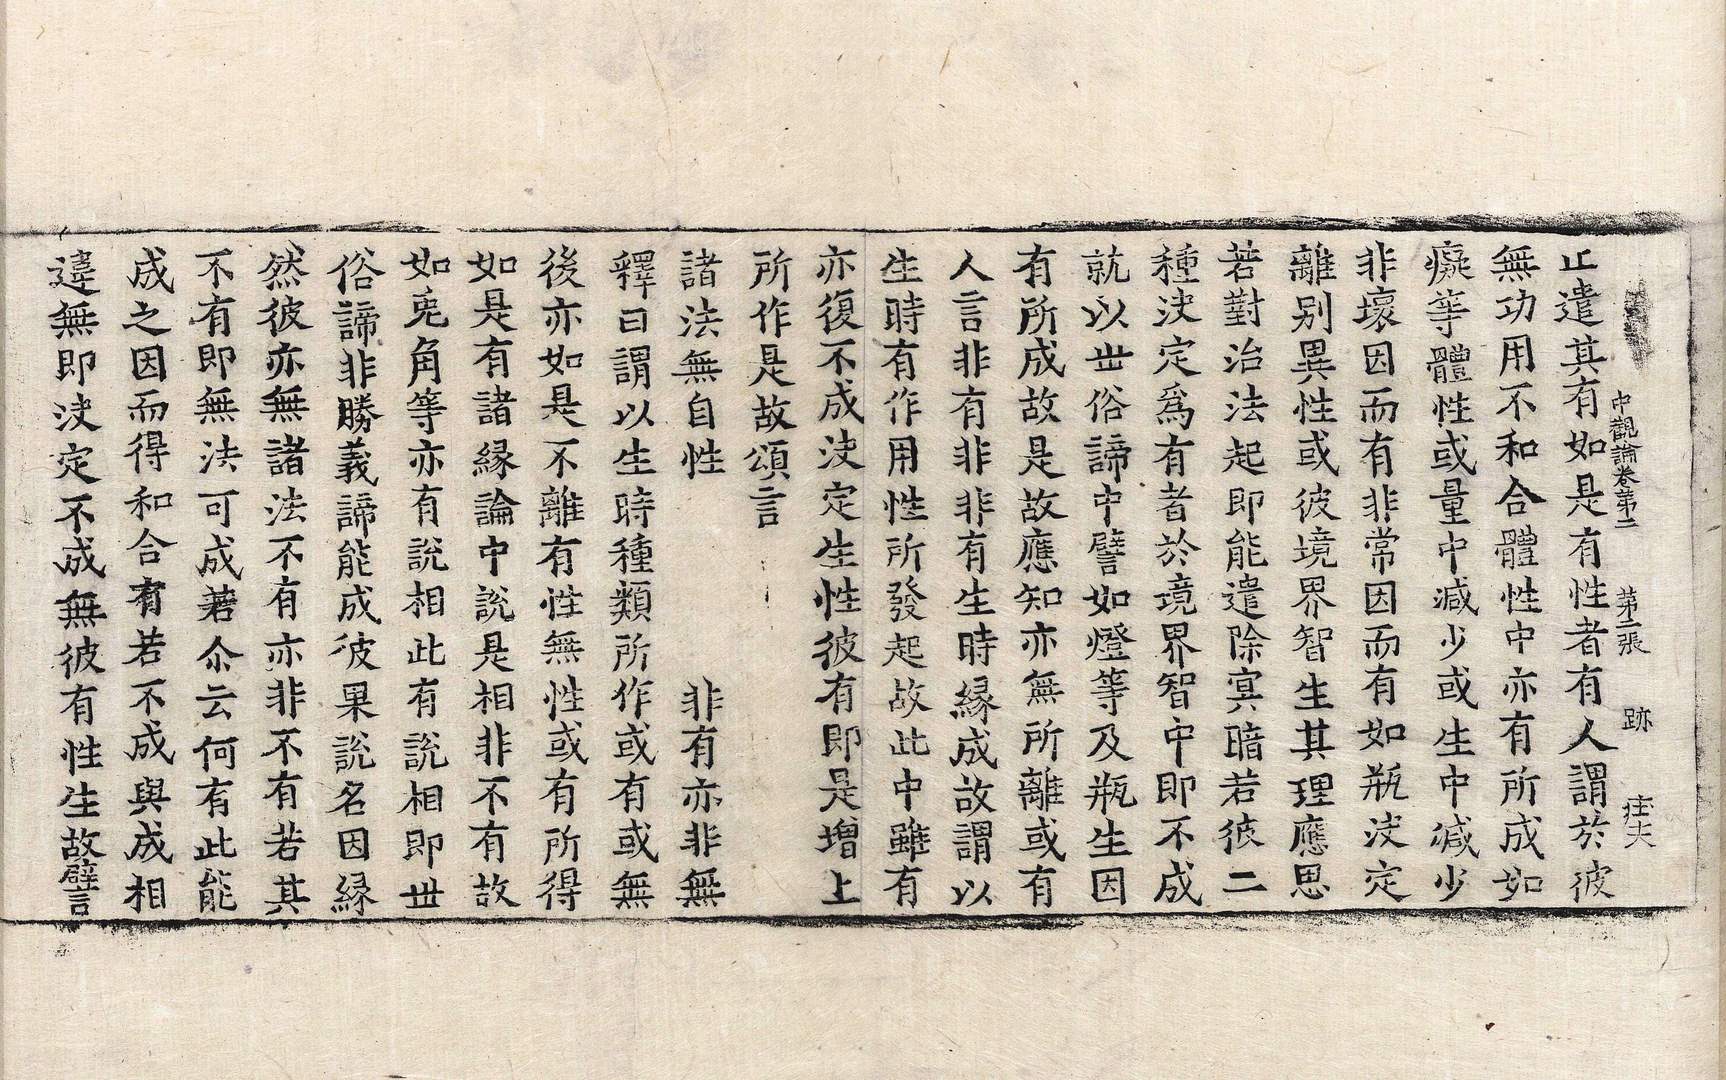 中觀論卷第二　第二張　跡　𤯝夫
止遣其有如是有性者有人謂於彼
無功用不和合體性中亦有所成如
癡等體性或量中減少或生中減少
非壞因而有非常因而有如瓶决定
離别異性或彼境界智生其理應思
若對治法起即能遣除㝠暗若彼二
種决定爲有者於境界智中即不成
就以丗俗諦中譬如燈等及瓶生因
有所成故是故應知亦無所離或有
人言非有非非有生時縁成故謂以
生時有作用性所發起故此中雖有
亦復不成决定生性彼有即是增上
所作是故頌言
諸法無自性　非有亦非無
釋曰謂以生時種類所作或有或無
後亦如是不離有性無性或有所得
如是有諸縁論中說是相非不有故
如兎角等亦有說相此有說相即丗
俗諦非勝義諦能成彼果說名因縁
然彼亦無諸法不有亦非不有若其
不有即無法可成若尒云何有此能
成之因而得和合有若不成與成相
違無即决定不成無彼有性生故譬言